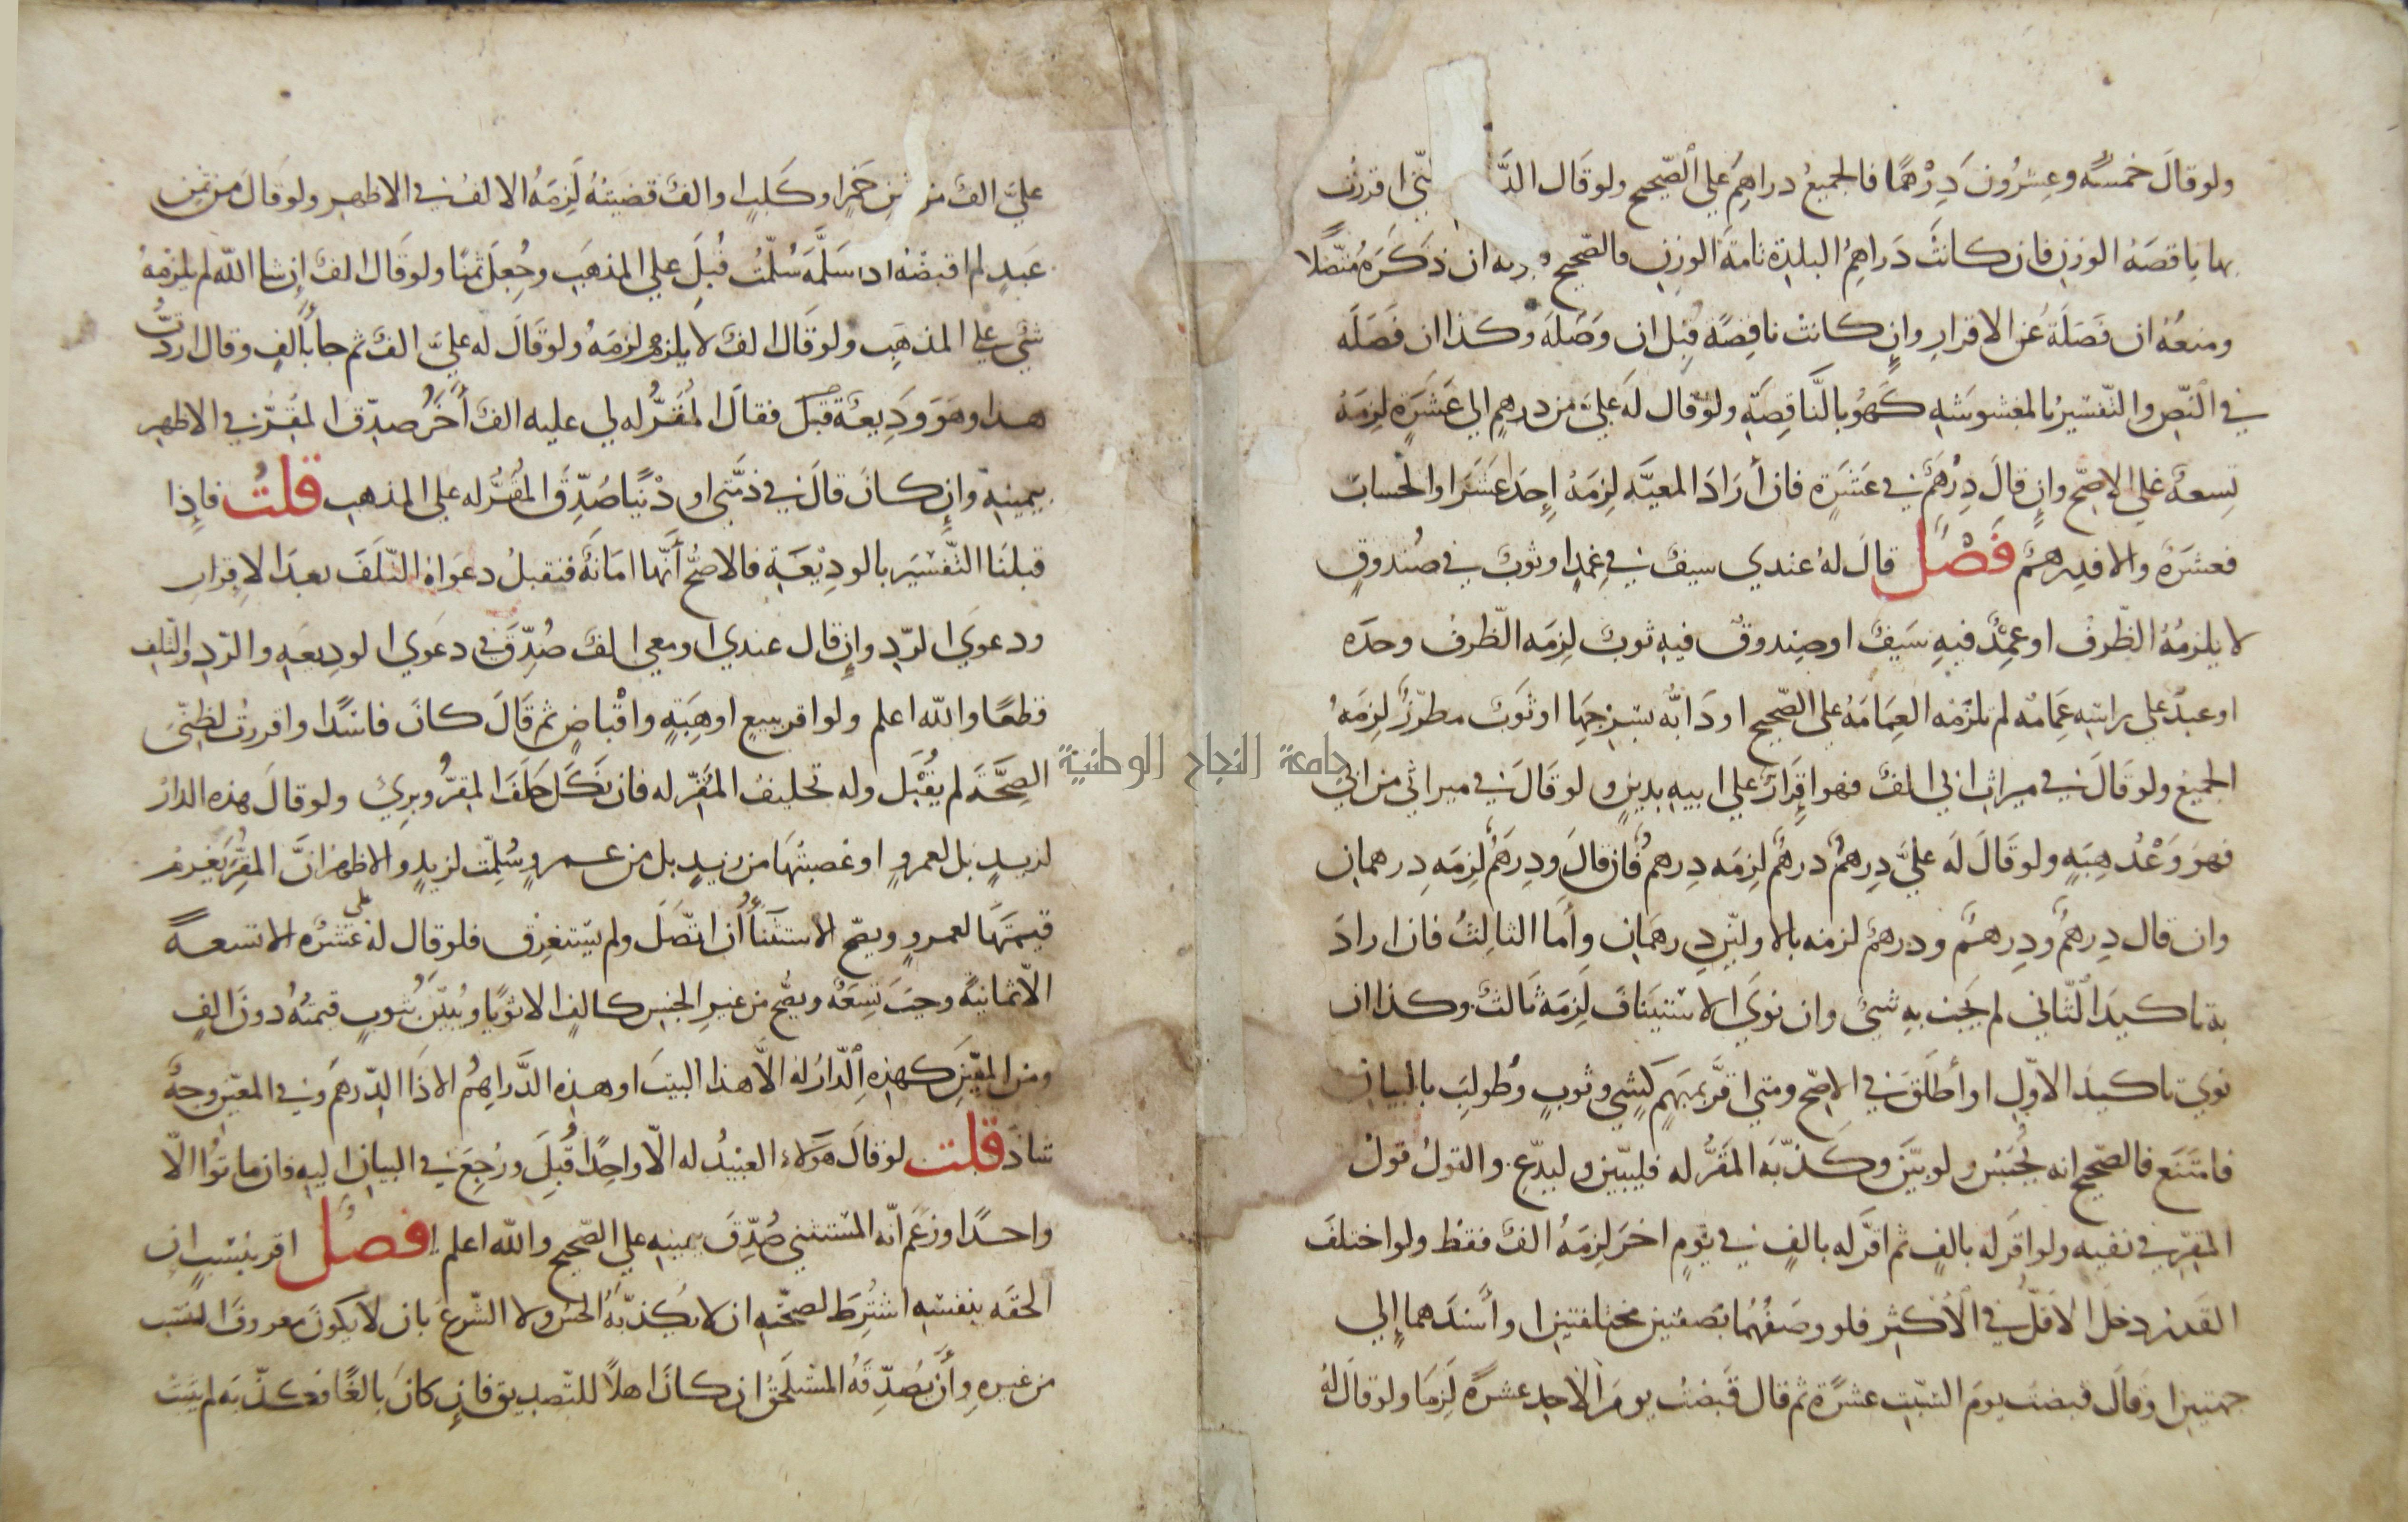 ولو قالَ خمسةٌ وعِشرُون دِرْهمًا فالجميعُ دراهِمُ علي الصّحيح ولو قَال الدَّ الّتي اقررتُ
بها ناقصَةُ الوَزنِ فان كانتْ دَراهِمُ البلدِ تامةَ الوزنِ فالصّحيح ان ذكَرَهُ متّصلًا
ومنعُهُ ان فَصَلَهُ عَن الاقرارِ وإن كانت ناقِصةً قبِل ان وَصَلهُ وكذا ان فصَلَه
في النّصِ والتّفسيرُ بالمغشوشَةِ كَهُو بالنَّاقِصَةِ ولو قال لَه عليّ من درهم الي عَشَرَةٍ لزمَهُ
تِسعةٌ علي الاصحِّ وإن قالَ دِرْهَمٌ في عَشَرَةٍ فان أرَادَ المعيّه لزمَهُ إحدَ عَشَرَ او الحسابَ
فعشَرَةٌ والا فدِرهَمٌ فَصْلٌ قالَ لهُ عندي سيفٌ في غمدٍ او ثوبٌ في صُندوقٍ
لا يلزمُهُ الظّرفُ او غمدٌ فيهِ سَيفٌ او صندوقٌ فيهِ ثوبٌ لزمَه الظّرفُ وحدَه
او عبدٌ علي راسِه عِمَامةٌ لم تلزمْه العِمَامَةُ علي الصّحيح او دَابّة بسَرجِهَا او ثَوبٌ مطرّزٌ لزمَهُ
الجميعُ ولو قَالَ في ميراثِ ابي الفٌ فهو اقرَارٌ علي ابيهِ بدينٍ ولو قَالَ في ميراثي من ابي
فهوَ وَعْدُ هِبَةٍ ولو قَالَ لَه عليَّ دِرهمٌ درهمٌ لزمَه دِرهمٌ فان قالَ ودِرهَمٌ لزمَهِ دِرهمانِ
وان قال دِرهمٌ ودِرهمٌ ودرهمٌ لزمَه بالاوليَينِ دِرهَمانِ وأمّا الثالِثُ فان ارادَ
به تاكيدَ الثّاني لم يَجب بهِ شيءٌ وان نوَي الاستيناف لَزمَهُ ثَالثٌ وكذا ان
نوي تاكيدَ الاوّلِ او أطلَقَ في الاصَحِّ ومتي اقَرَّ بمبهَمٍ كشيءٍ وثوبٍ وطُولبَ بالبيانِ
فامتَنَعَ فالصّحيحُ انه يُحبَسُ ولو بيَّنَ وكَذّبَه المقَرُّ له فليبّين وليدّعِ والقولُ قولُ
المقِرِّ في نفيِه ولو اقرَّ له بالفٍ ثم اقرَّ له بالفٍ في يَومٍ اخرَ لزِمَهُ الفٌ فقطْ ولو اختلفَ
القَدرُ دخَلَ الاقلُّ في الأكثرِ فلو وصَفَهُمَا بصفتين مختلفتين او أسندَهما إلي
جهتين او قالَ قبضتُ يومَ السّبتِ عشرَةً ثم قال قبضتُ يومَ الأحدِ عشرةً لَزِمَا ولو قالَ لهُ
عليَّ الفٌ من ثمنِ خمرٍ او كَلبٍ او الفٌ قضيتُهُ لَزِمَهُ الالفُ في الاظهرِ ولو قالَ من ثمنِ
عَبدٍ لم اقبضْهُ اذا سَلَّمَهُ سَلَّمْتُ قُبِلَ علي المذهَبِ وجُعلَ ثمنًا ولو قَال الفٌ إن شا الله لم يلزمْهُ
شيءٌ علي المذهَبِ ولو قَال الفٌ لا يلزمُ لزمَهُ ولو قَالَ له عليّ الفٌ ثم جا بالفٍ وقال اردتُ
هذا وهوَ وَدِيعةٌ فقالَ المُقَرُّ له لي عليه الفٌ أخَرُ صدّقَ المُقِرُّ في الاظهرِ
بيمينهِ وإن كانَ قالَ في ذمَّتي او دَيْنًا صُدِّقَ المُقَرُّ له علي المذهبِ قلتُ فإذا
قبلنَا التّفسيَر بالودِيْعَةِ فالاصحُّ أنَّها امَانَةٌ فتقبلُ دعوَاهُ التّلَفَ بعدَ الاقرارِ
ودعوَي الرّدِ وإن قالَ عندي او معي الفٌ صُدِّقَ في دعَوي الوديعَةِ والرّدِ والتّلفِ
قطعًا والله اعلم ولو اقر ببيعٍ او هِبَةٍ واقْباضٍ ثم قَالَ كانَ فاسدًا واقررتُ لظنّي
الصِحَّةَ لم يُقْبَل وله تحليفُ المُقَرِّ له فان نكَلَ حَلَفَ المقِرُّ وبرئَ ولو قالَ هذه الدارُ
لزيدٍ بل لعمروٍ او غصبتُهَا من زيدٍ بل من عمروٍ سُلِمّت لزيدٍ والاظهرُ انّ المقِرَّ يَغرمُ
قيمتَهَا لعمروٍ ويصحّ الاستثنَأُ أن اتّصَلَ ولم يَستغرِق فلو قال لهُ علي عشرةٌ الا تسعةً
الّا ثمانيةً وجبَ تسعَةٌ ويصحُّ من غيرِ الجنسِ كالفٍ الا ثوبًا ويُبيّنُ بثوبٍ قيمتُهُ دونَ الفٍ
ومن المعَيّنِ كهذِهِ الدّارُ له الّا هذا البيتَ او هذِه الدَّراهِمُ الا ذَا الدّرهَمَ وفي المعيّنِ وجهٌ
شاذٌ قلت لو قالَ هَولاءِ العَبيدُ له الّا واحِدًا قُبِلَ ورُجِعَ في البيانِ اليهِ فان ماتُوا الّا
واحدًا وزعَم انّه المسْتثني صُدِّقَ بيمينِه علي الصّحيحِ والله اعلم فصلٌ اقر بنسَبٍ ان
الحقَه بنفسِهِ اشتُرِطَ لصحّتِه ان لا يُكذّبَهُ الحسُّ ولا الشّرعُ بان لا يكونَ معروفَ النسَبِ
من غيرهِ وأن يُصَدِّقَهُ المستَلحَقُ ان كانَ اهلًا للتّصديقِ فان كانَ بالغًا فكذّبَه لم يثبت
جامعة النجاح الوطنية